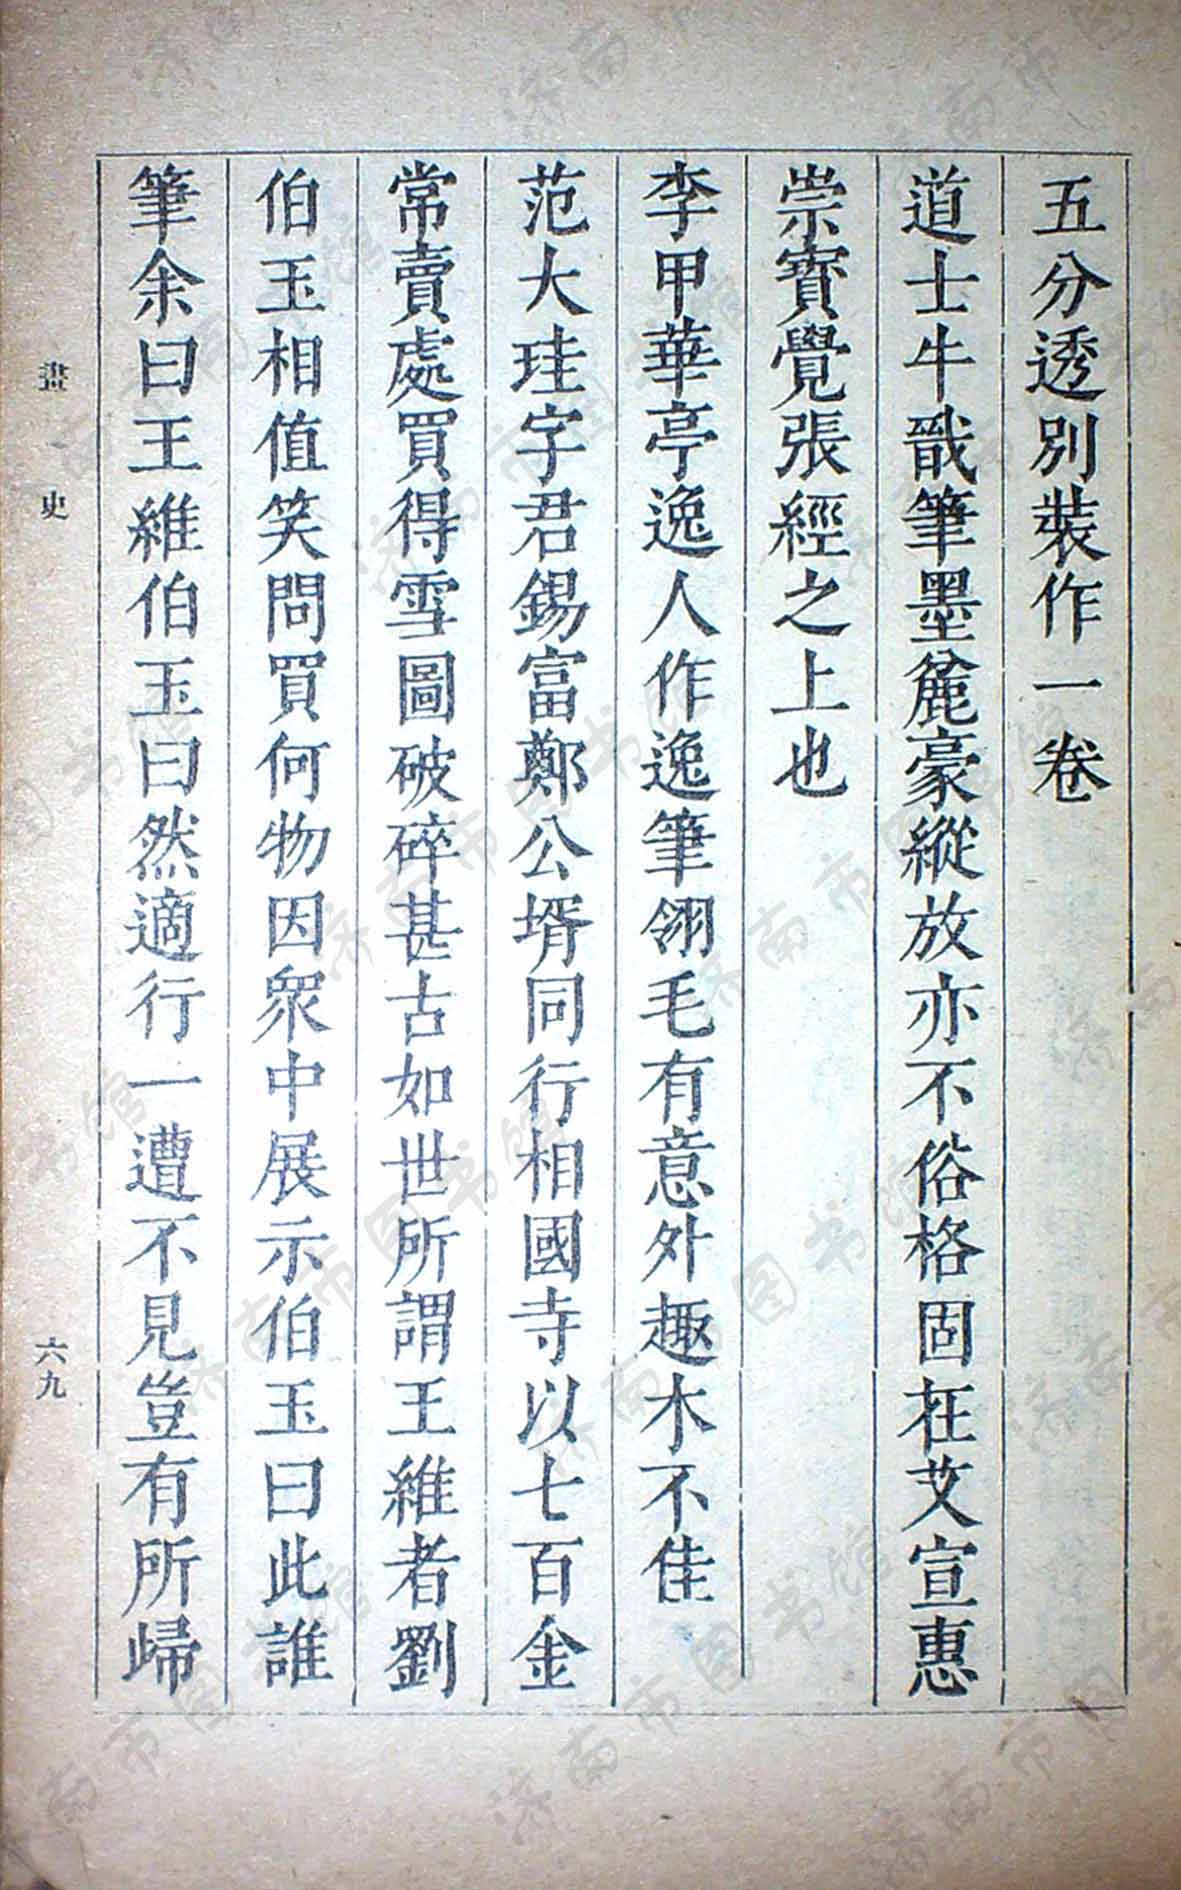 五分透別裝作一卷
道士牛戩筆墨麄豪縱放亦不俗格固在艾宣惠
崇寶覺張經之上也
李甲華亭逸人作逸筆翎毛有意外趣木不佳
范大珪字君錫富鄭公壻同行相國寺以七百金
常賣處買得雪圖破碎甚古如世所謂王維者劉
伯玉相值笑問買何物因衆中展示伯玉曰此誰
筆余曰王維伯玉曰然適行一遭不見豈有所歸
畫史
六九
济南市图书馆